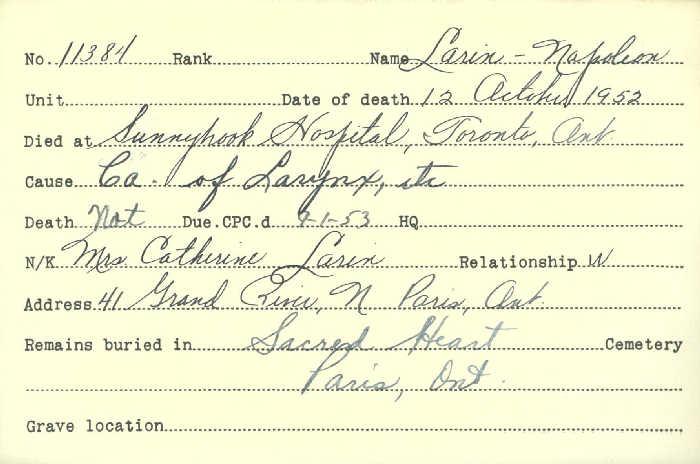 No. 11384 Rank Name Larin - Napoleon
Unit Date of death 12 October 1952
Died at Sunnybrook Hospital, Toronto, Ont.
Cause Ca. of Larynx, etc
Death Not Due. CPC.d 9-1-53 HQ
N/K Mrs Catherine Larin Relationship W
Address 41 Grand River, N Paris, Ont.
Remains buried in Sacred Heart Cemetery
Paris, Ont.
Grave location